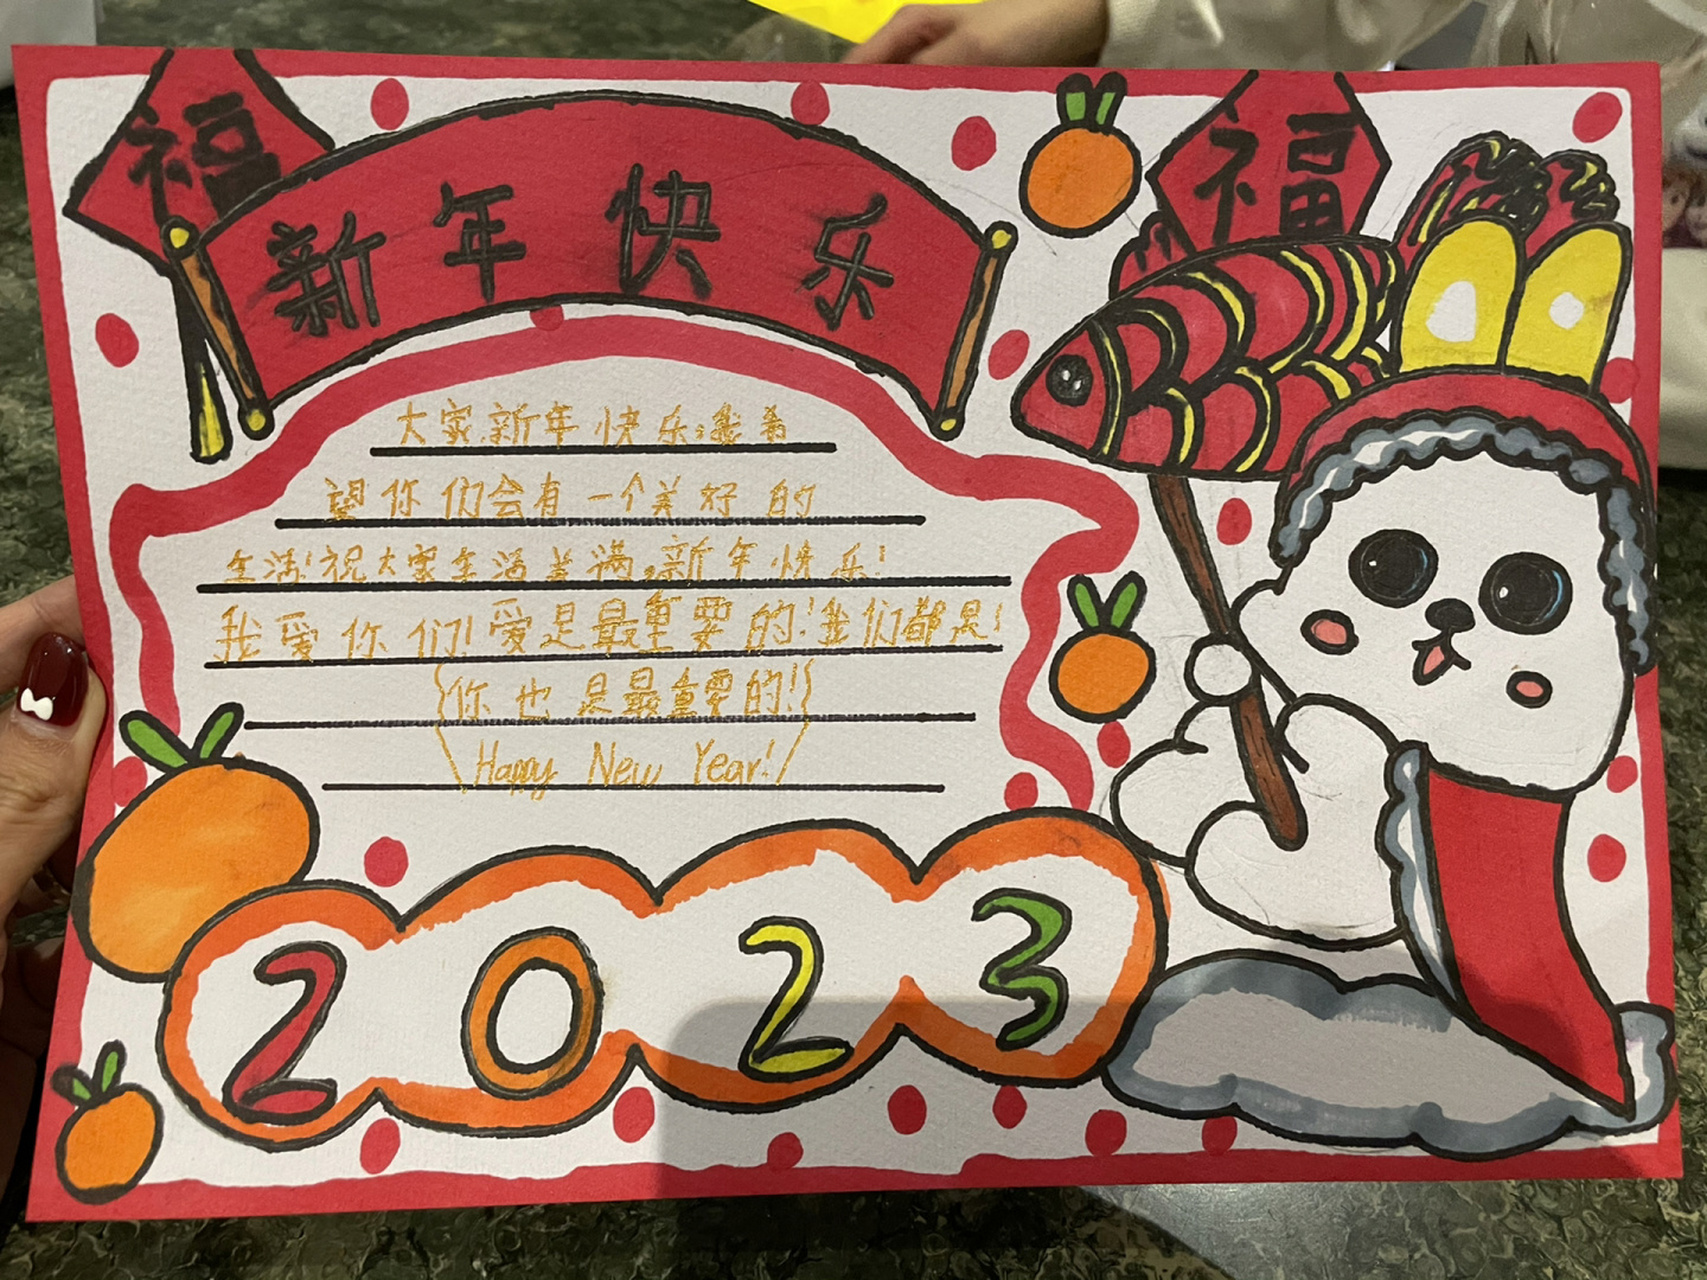 福
新年快乐
福
大家,新年快乐!我希
望你们会有一个美好的
生活!祝大家生活美满,新年快乐!
我爱你们!爱是最重要的!我们都是!
{你也是最重要的!}
\Happy New Year!/
2023